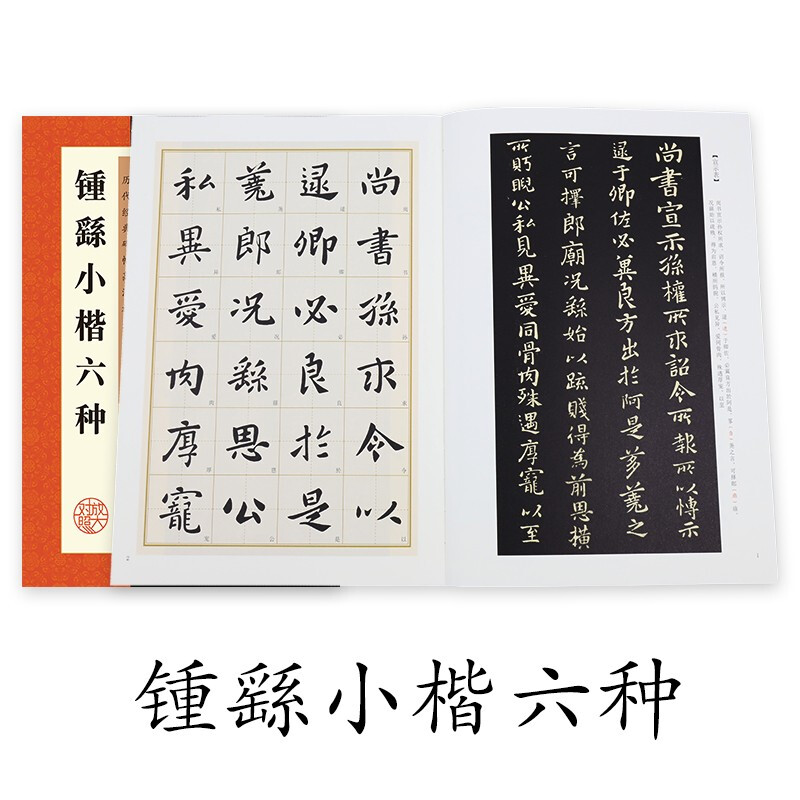 锺繇小楷六种
放大对照
历代经典碑帖
尚書孫求令以
逮卿必良於是
蕘郎况繇恩公
私異愛肉厚寵
2
【宣示表】
尚書宣示孫權所求詔令所報所以愽示
逮于卿佐必兾良方出於阿是芻蕘之
言可擇郎廟况繇始以疏賤得為前恩橫
所眄睨公私見異愛同骨肉殊遇厚寵以至
1
锺繇小楷六种